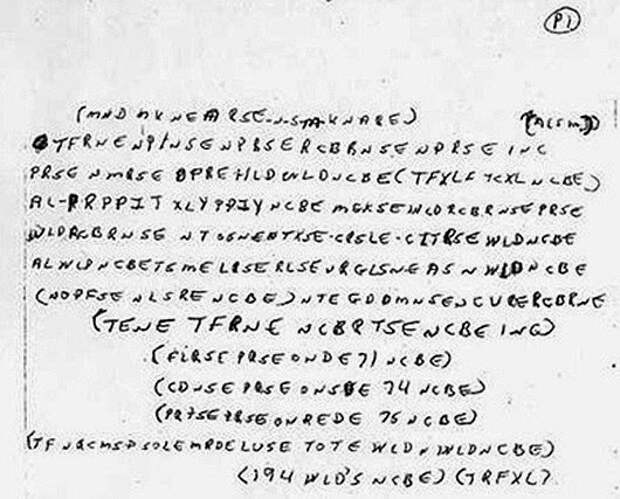 P1
(MND MKNEARSE-N-S-M-KNARE) (ACSM)
TFRNENPINSENPRSERCBRNSENPRSE INC
PRSE NMRSE OPREHLDWLDNCBE (TFXLF TCXL NCBE)
AL-PRPPIT XLYPPIY NCBE MGKSEWLDRCBRNSEPRSE
WLDRCBRNSE NTSGNENTXSE-CRSLE-CITRSE WLDNCBE
ALWLPNCBETSMELRSERLSEURGLSNEASNWLDNCBE
(NOPFSE NLSRE NCBE) NTEGDDMNSENCURERCBRNE
(TENE TFRNE NCBRTSENCBE INC)
(FLRSE PRSE ONDE 71 NCBE)
(CDNSE PRSE ONSDE 74 NCBE)
(PRTSE PRSE ONREDE 75 NCBE)
(TFNQCMSP SOLEMRDELUSE TOTE WLDN WLDNCBE)
(194 WLD'S NCBE) (TRFXL)